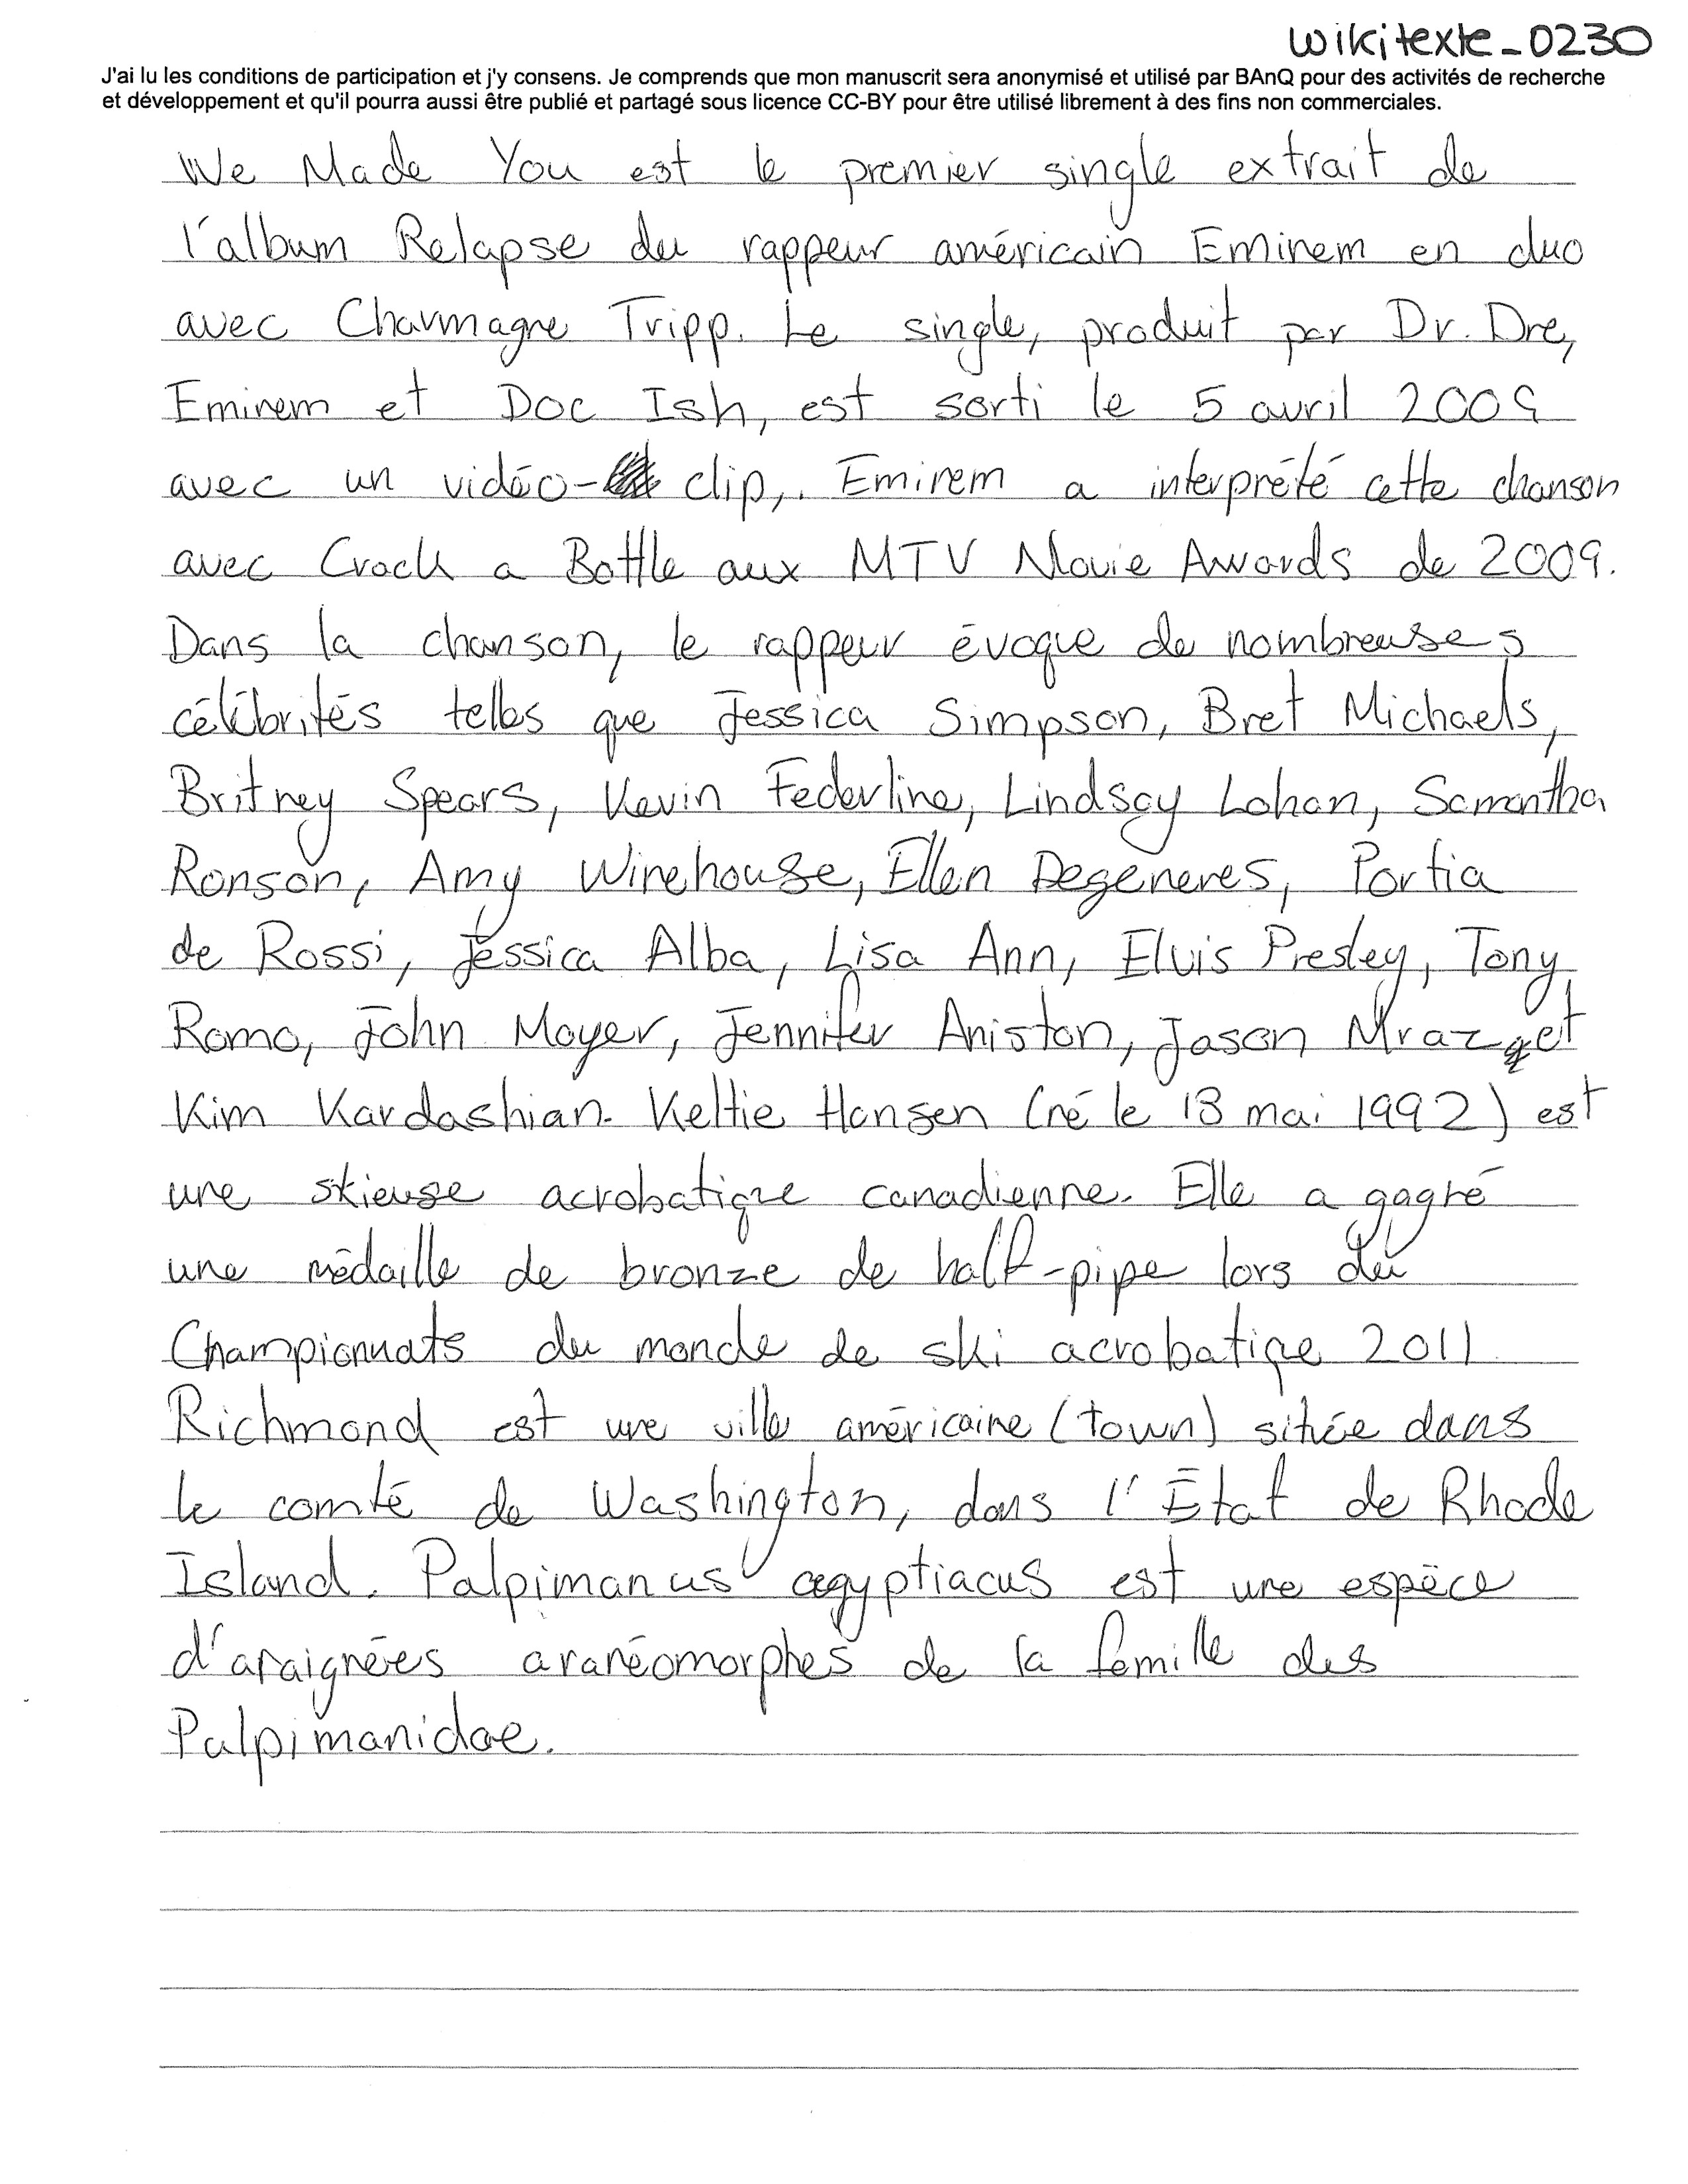 wikitexte_0230
J'ai lu les conditions de participation et j'y consens. Je comprends que mon manuscrit sera anonymisé et utilisé par BAnQ pour des activités de recherche
et développement et qu'il pourra aussi être publié et partagé sous licence CC-BY pour être utilisé librement à des fins non commerciales.
We Made You est le premier single extrait de
l'album Relapse du rappeur américain Eminem en duo
avec Charmagne Tripp. Le single, produit par Dr. Dre,
Eminem et Doc Ish, est sorti le 5 avril 2009
avec un vidéo-clip,. Eminem a interprété cette chanson
avec Crack a Bottle aux MTV Movie Awards de 2009.
Dans la chanson, le rappeur évoque de nombreuses
célébrités telles que Jessica Simpson, Bret Michaels,
Britney Spears, Kevin Federline, Lindsay Lohan, Samantha
Ronson, Amy Winehouse, Ellen Degeneres, Portia
de Rossi, Jessica Alba, Lisa Ann, Elvis Presley, Tony
Romo, John Mayer, Jennifer Aniston, Jason Mraz et
Kim Kardashian. Keltie Hansen (né le 18 mai 1992) est
une skieuse acrobatique canadienne. Elle a gagné
une médaille de bronze de half-pipe lors du
Championnats du monde de ski acrobatiqe 2011
Richmond est une ville américaine (town) située dans
le comté de Washington, dans l'État de Rhode
Island. Palpimanus aegyptiacus est une espèce
d'araignées aranéomorphes de la famille des
Palpimanidae.